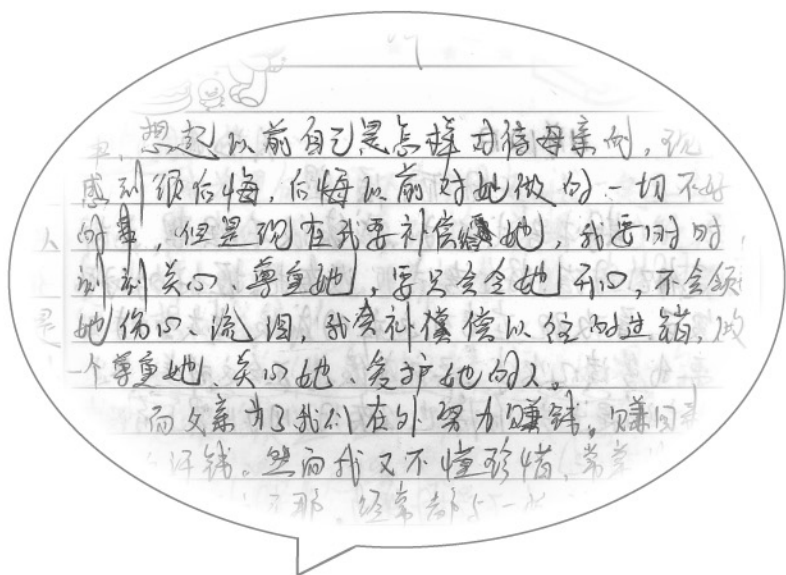 想起以前自己是怎样对待母亲的，现
感到很后悔，后悔以前对她做的一切不好
的事，但是现在我要补偿她，我要时时
刻刻关心、尊重她，要只会令她开心，不会
她伤心、流泪，我要补偿以往的过错，做
一个尊重她、关心她、爱护她的人。
而父亲为了我们在外努力赚钱。赚回
汗钱。然而我又不懂珍惜，常常
那，经常都与一